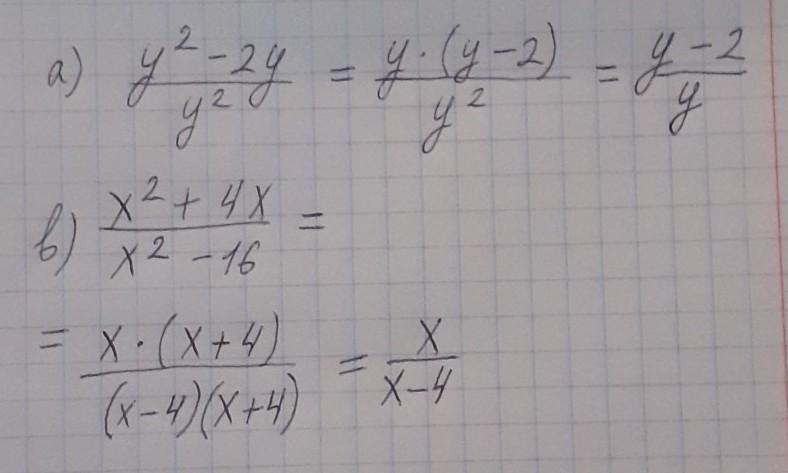 а) (y² − 2y)/y² = y·(y − 2)/y² = (y − 2)/y
в) (x² + 4x)/(x² − 16) =
= x·(x + 4)/((x − 4)(x + 4)) = x/(x − 4)